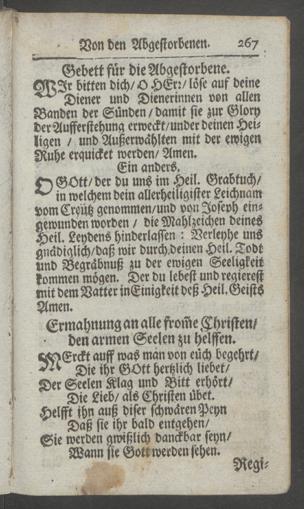 Von den Abgestorbenen. 267
Gebett für die Abgestorbene.
WIr bitten dich/ O HErr/ löse auf deine
Diener und Dienerinnen von allen
Banden der Sünden/ damit sie zur Glory
der Aufferstehung erweckt/ under deinen Hei-
ligen / und Außerwählten mit der ewigen
Ruhe erquicket werden/ Amen.
Ein anders.
O GOtt/ der du uns im Heil. Grabtuch/
in welchem dein allerheiligister Leichnam
vom Creütz genommen/ und von Joseph ein-
gewunden worden / die Mahlzeichen deines
Heil. Leydens hinderlassen : Verleyhe uns
gnädiglich/ daß wir durch deinen Heil. Todt
und Begräbnuß zu der ewigen Seeligkeit
kommen mögen. Der du lebest und regierest
mit dem Vatter in Einigkeit deß Heil. Geists
Amen.
Ermahnung an alle from̃e Christen/
den armen Seelen zu helffen.
MErckt auff was man von eüch begehrt/
Die ihr GOtt hertzlich liebet/
Der Seelen Klag und Bitt erhört/
Die Lieb/ als Christen übet.
Helfft ihn auß diser schwären Peyn
Daß sie ihr bald entgehen/
Sie werden gwißlich danckbar seyn/
Wann sie Gott werden sehen.
Regi-